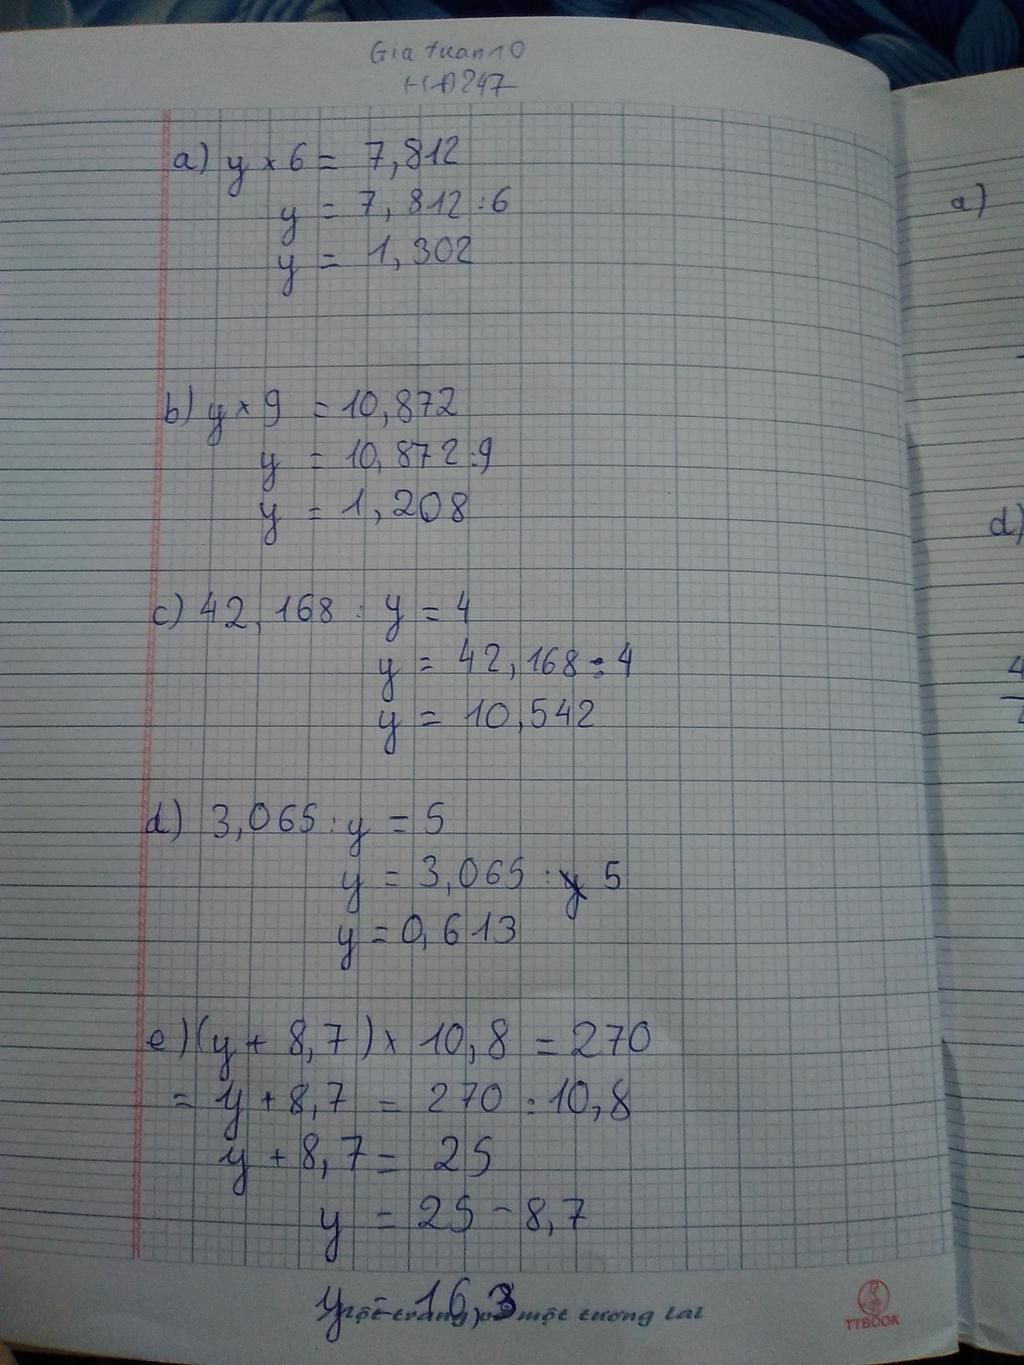 Gia tuan10
HD247
a) y × 6 = 7,812
y = 7,812 : 6
y = 1,302
b) y × 9 = 10,872
y = 10,872 : 9
y = 1,208
c) 42,168 : y = 4
y = 42,168 : 4
y = 10,542
d) 3,065 : y = 5
y = 3,065 : 5
y = 0,613
e) (y + 8,7) × 10,8 = 270
= y + 8,7 = 270 : 10,8
y + 8,7 = 25
y = 25 - 8,7
y = 16,3
một tương lai
TTBOOK
a)
d)
4